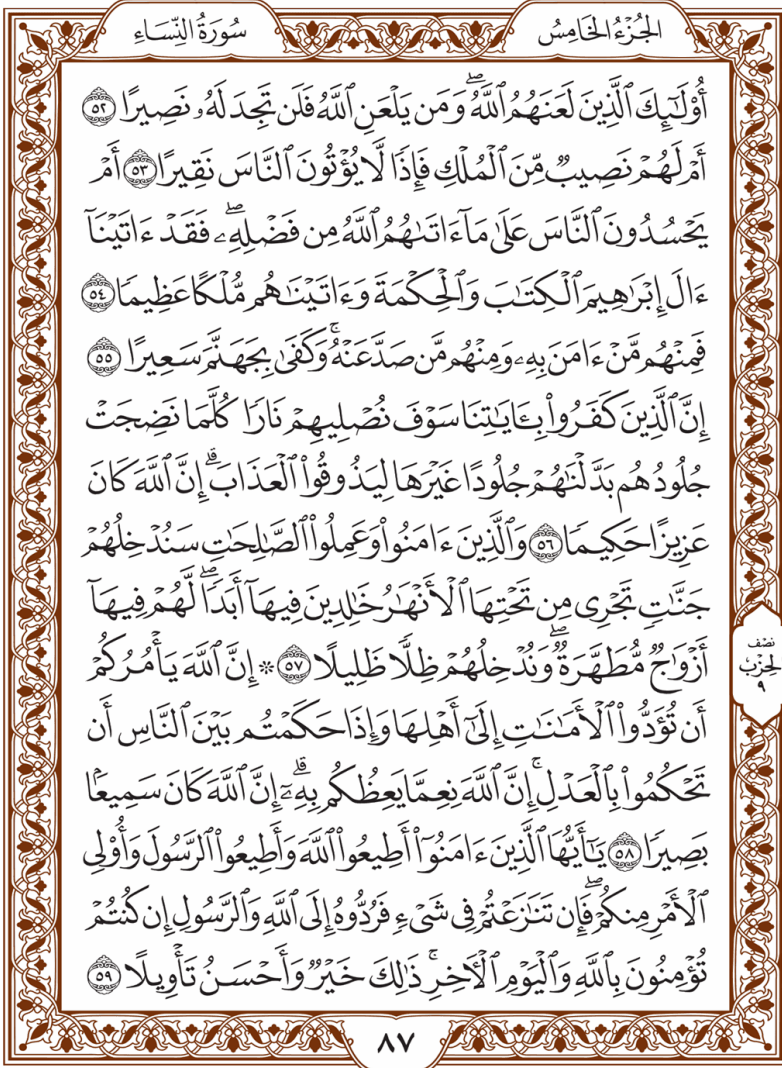 الجُزْءُ الخَامِسُ
سُورَةُ النِّسَاءِ
أُوْلَٰٓئِكَ ٱلَّذِينَ لَعَنَهُمُ ٱللَّهُۖ وَمَن يَلْعَنِ ٱللَّهُ فَلَن تَجِدَ لَهُۥ نَصِيرًا ٥٢
أَمْ لَهُمْ نَصِيبٌ مِّنَ ٱلْمُلْكِ فَإِذًا لَّا يُؤْتُونَ ٱلنَّاسَ نَقِيرًا ٥٣ أَمْ
يَحْسُدُونَ ٱلنَّاسَ عَلَىٰ مَآ ءَاتَىٰهُمُ ٱللَّهُ مِن فَضْلِهِۦۖ فَقَدْ ءَاتَيْنَآ
ءَالَ إِبْرَٰهِيمَ ٱلْكِتَٰبَ وَٱلْحِكْمَةَ وَءَاتَيْنَٰهُم مُّلْكًا عَظِيمًا ٥٤
فَمِنْهُم مَّنْ ءَامَنَ بِهِۦ وَمِنْهُم مَّن صَدَّ عَنْهُۚ وَكَفَىٰ بِجَهَنَّمَ سَعِيرًا ٥٥
إِنَّ ٱلَّذِينَ كَفَرُواْ بِـَٔايَٰتِنَا سَوْفَ نُصْلِيهِمْ نَارًا كُلَّمَا نَضِجَتْ
جُلُودُهُم بَدَّلْنَٰهُمْ جُلُودًا غَيْرَهَا لِيَذُوقُواْ ٱلْعَذَابَۗ إِنَّ ٱللَّهَ كَانَ
عَزِيزًا حَكِيمًا ٥٦ وَٱلَّذِينَ ءَامَنُواْ وَعَمِلُواْ ٱلصَّٰلِحَٰتِ سَنُدْخِلُهُمْ
جَنَّٰتٍ تَجْرِى مِن تَحْتِهَا ٱلْأَنْهَٰرُ خَٰلِدِينَ فِيهَآ أَبَدًاۖ لَّهُمْ فِيهَآ
أَزْوَٰجٌ مُّطَهَّرَةٌۖ وَنُدْخِلُهُمْ ظِلًّا ظَلِيلًا ٥٧ ۞ إِنَّ ٱللَّهَ يَأْمُرُكُمْ
نصف
الحزب
٩
أَن تُؤَدُّواْ ٱلْأَمَٰنَٰتِ إِلَىٰٓ أَهْلِهَا وَإِذَا حَكَمْتُم بَيْنَ ٱلنَّاسِ أَن
تَحْكُمُواْ بِٱلْعَدْلِۚ إِنَّ ٱللَّهَ نِعِمَّا يَعِظُكُم بِهِۦٓۗ إِنَّ ٱللَّهَ كَانَ سَمِيعًۢا
بَصِيرًا ٥٨ يَٰٓأَيُّهَا ٱلَّذِينَ ءَامَنُوٓاْ أَطِيعُواْ ٱللَّهَ وَأَطِيعُواْ ٱلرَّسُولَ وَأُوْلِى
ٱلْأَمْرِ مِنكُمْۖ فَإِن تَنَٰزَعْتُمْ فِى شَىْءٍ فَرُدُّوهُ إِلَى ٱللَّهِ وَٱلرَّسُولِ إِن كُنتُمْ
تُؤْمِنُونَ بِٱللَّهِ وَٱلْيَوْمِ ٱلْأَخِرِۚ ذَٰلِكَ خَيْرٌ وَأَحْسَنُ تَأْوِيلًا ٥٩
٨٧